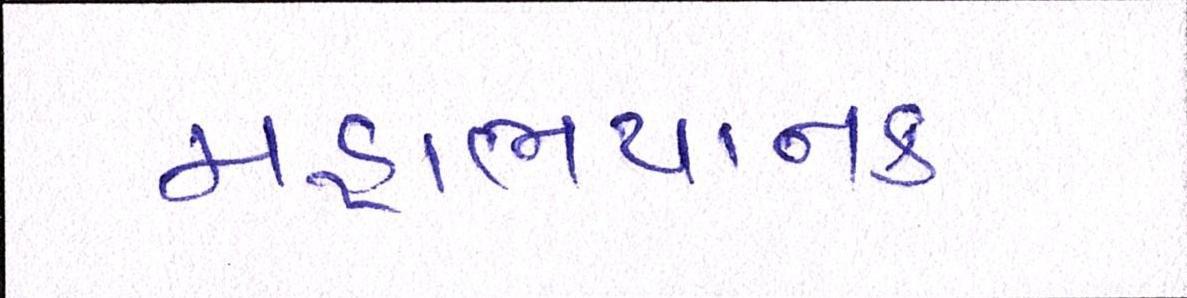 મહાભયાનક